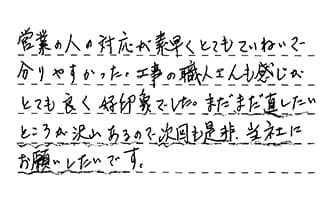 営業の人の対応が素早くとてもていねいで
分りやすかった。工事の職人さんも感じが
とても良く好印象でした。まだまだ直したい
ところが沢山あるので次回も是非、当社に
お願いしたいです。